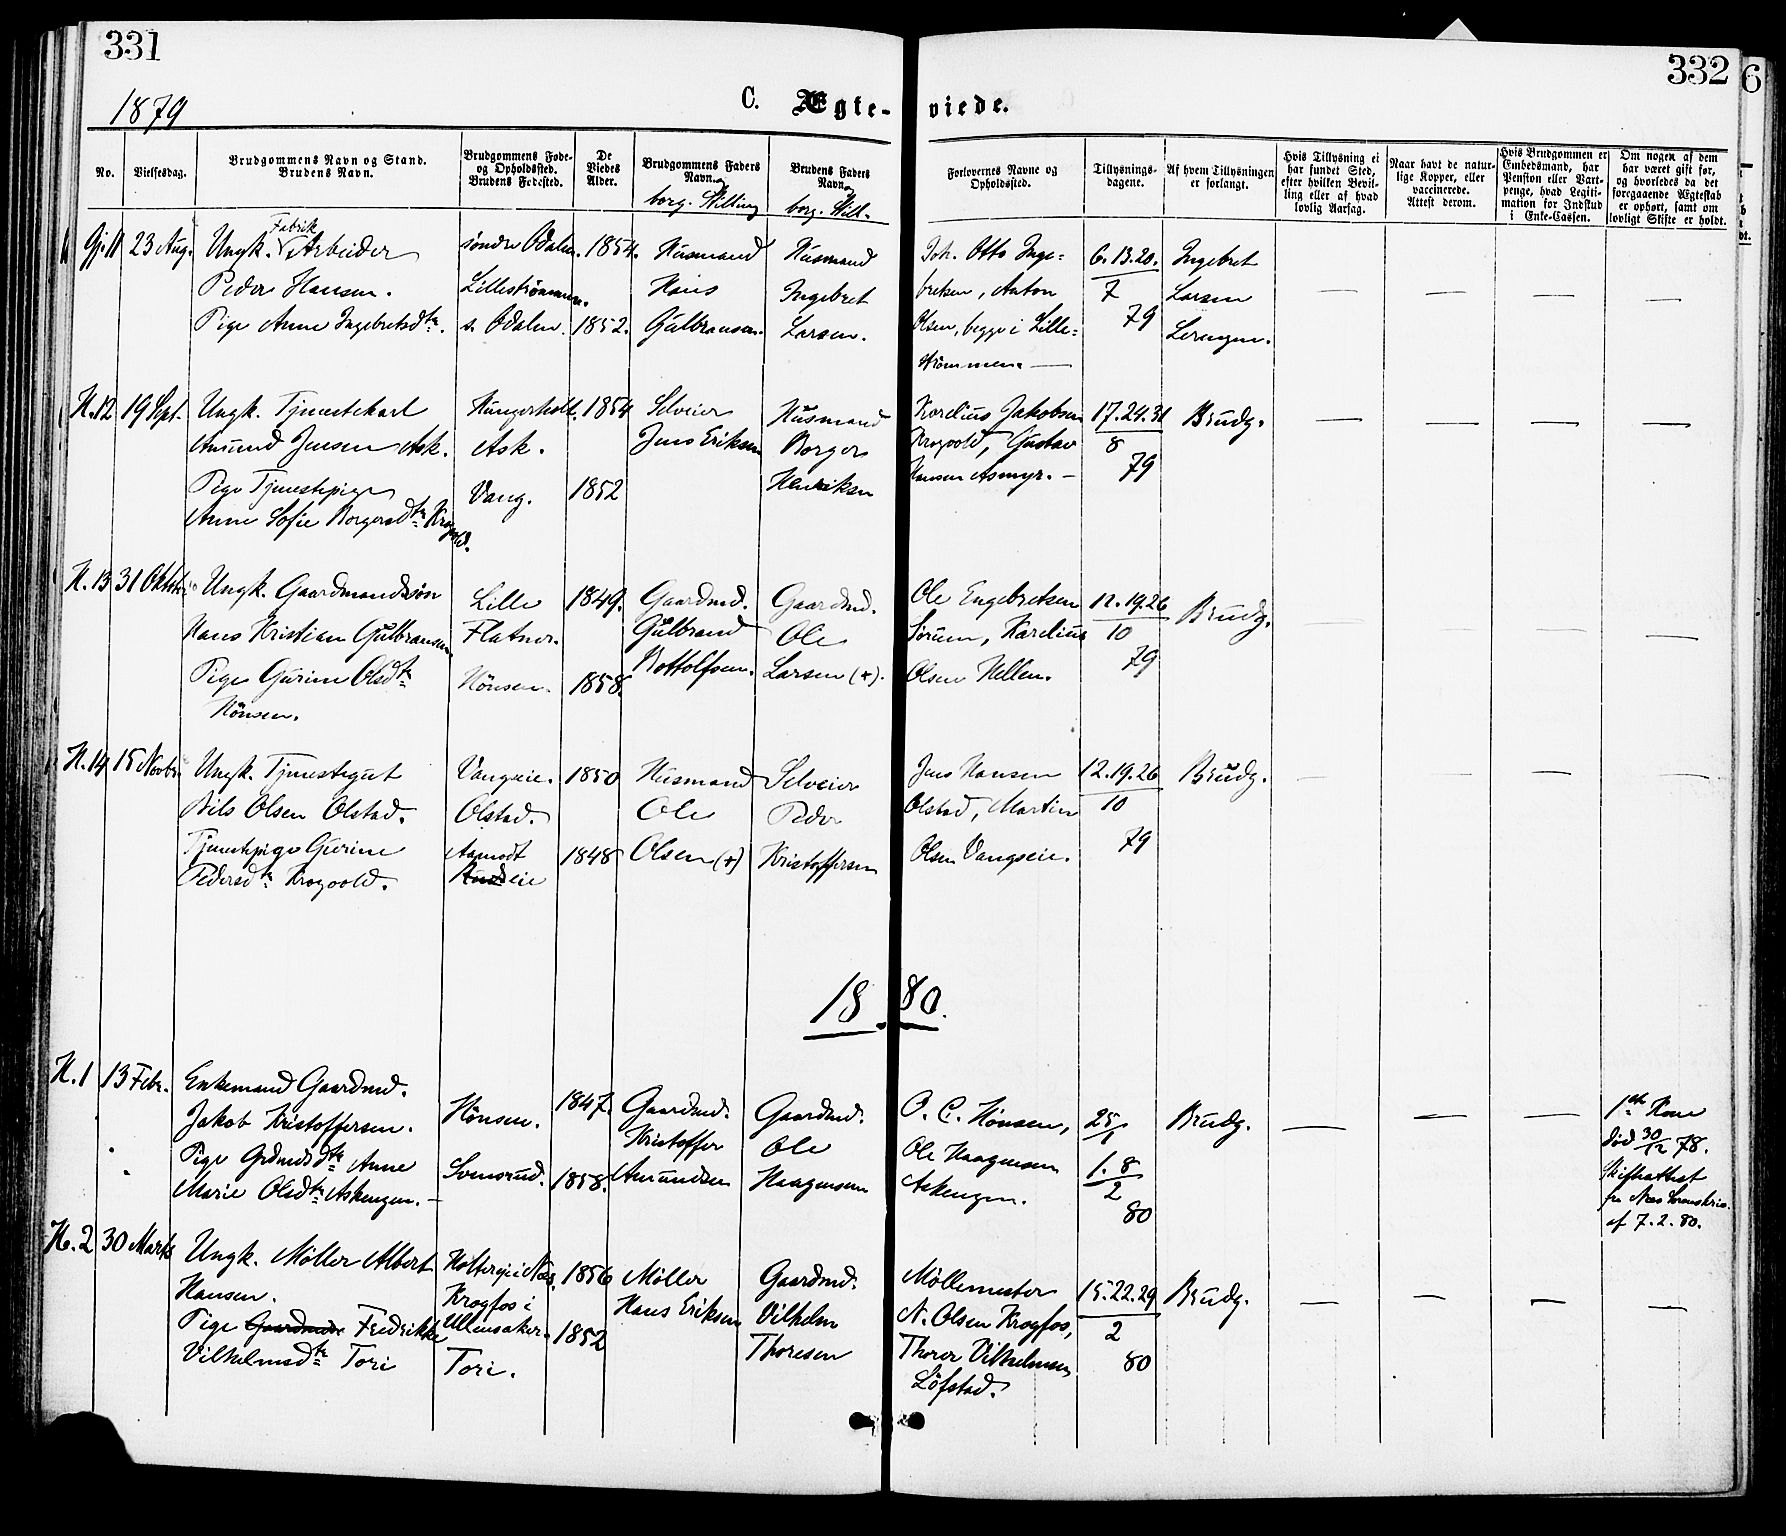 331
332
6
1879
C. Ægte-viede.
No.
Vielsesdag.
Brudgommens Navn og Stand.
Brudens Navn.
Brudgommens Føde-
og Opholdssted.
Brudens Fødested.
De
Viedes
Alder.
Brudgommens Faders
Navn
borg. Stilling
Brudens Faders
Navn
borg. Still.
Forlovernes Navne og
Opholdssted.
Tillysnings-
dagene.
Af hvem Tillysningen
er forlangt.
Hvis Tillysning ei
har fundet Sted,
efter hvilken Bevil-
ling eller af hvad
lovlig Aarsag.
Naar havt de natur-
lige Kopper, eller
vaccinerede.
Attest derom.
Hvis Brudgommen er
Embedsmand, har
Pension eller Vart-
penge, hvad Legiti-
mation for Indskud
i Enke-Cassen.
Om nogen af dem
har været gift før,
og hvorledes da det
foregaaende Ægteskab
er ophørt, samt om
lovligt Skifte er holdt.
Gj. 11
23 Aug.
Ungk. Fabrik Arbeider
Peder Hansen.
Pige Anne Ingebretsdtr.
søndre Odalen.
Lillestrømmen.
s. Odalen.
1854.
1852.
Husmand
Hans
Gulbransen.
Husmand
Ingebret
Larsen.
Joh. Otto Inge-
bretsen, Anton
Olsen, begge i Lille-
strømmen. —
6. 13. 20.
7
79
Ingebret
Larsen
— — — —
H. 12
19 Sept.
Ungk. Tjenestekarl
Amund Jensen Ask.
Pige Tjenestepige
Anne Sofie Borgersdtr Krogvold.
Hungerholt.
Ask.
Vang.
1854
1852
Selveier
Jens Eriksen
Husmand
Borger
Henriksen
Karelius Jakobsen
Krogvold, Gustav
Hansen Asmyr. —
17. 24. 31
8
79
Brudg.
— — — —
H. 13
31 Oktobr.
Ungk. Gaardmandssøn
Hans Kristian Gulbransen
Pige Gurine Olsdtr
Hønsen.
Lille
Flatner.
Hønsen.
1849.
1858.
Gaardmd.
Gulbrand
Bottolfsen.
Gaardmd.
Ole
Larsen (+).
Ole Engebretsen
Sørum, Karelius
Olsen Hellen.
12. 19. 26
10
79
Brudg.
— — — —
H. 14
15 Novbr.
Ungk. Tjenestegut
Nils Olsen Olstad.
Tjenestepige Gurine
Pedersdtr Krogvold.
Vangseie.
Olstad.
Aamodt
eie
1850
1848
Husmand
Ole
Olsen (+)
Selveier
Peder
Kristoffersen
Jens Hansen
Olstad, Martin
Olsen Vangseie.
12. 19. 26
10
79
Brudg.
— — — —
1880.
H. 1
13 Febr.
Enkemand Gaardmd.
Jakob Kristoffersen.
Pige Grdmdsdtr Anne
Marie Olsdtr Askengen. —
Hønsen.
Svensrud.
1847.
1858.
Gaardmd.
Kristoffer
Amundsen
Gaardmd.
Ole
Haagensen
O. C. Hønsen,
Ole Haagensen
Askengen.
25/1
1. 8
2
80
Brudg.
— — —
1ste Kone
død 30/12 78.
Skifteattest
fr. Næs Sorenskriv.
af 7. 2. 80.
H. 2
30 Marts
Ungk. Møller Albert
Hansen.
Pige Gaardmds Fredrikke
Vilhelmsdtr Tori
Holtereie i Næs.
Krogfos i
Ullensaker.
Tori.
1856
1852
Møller
Hans Eriksen
Gaardmd.
Vilhelm
Thoresen
Møllemester
N. Olsen Krogfos,
Thorer Vilhelmsen
Løfstad.
15. 22. 29
2
80
Brudg.
— — — —